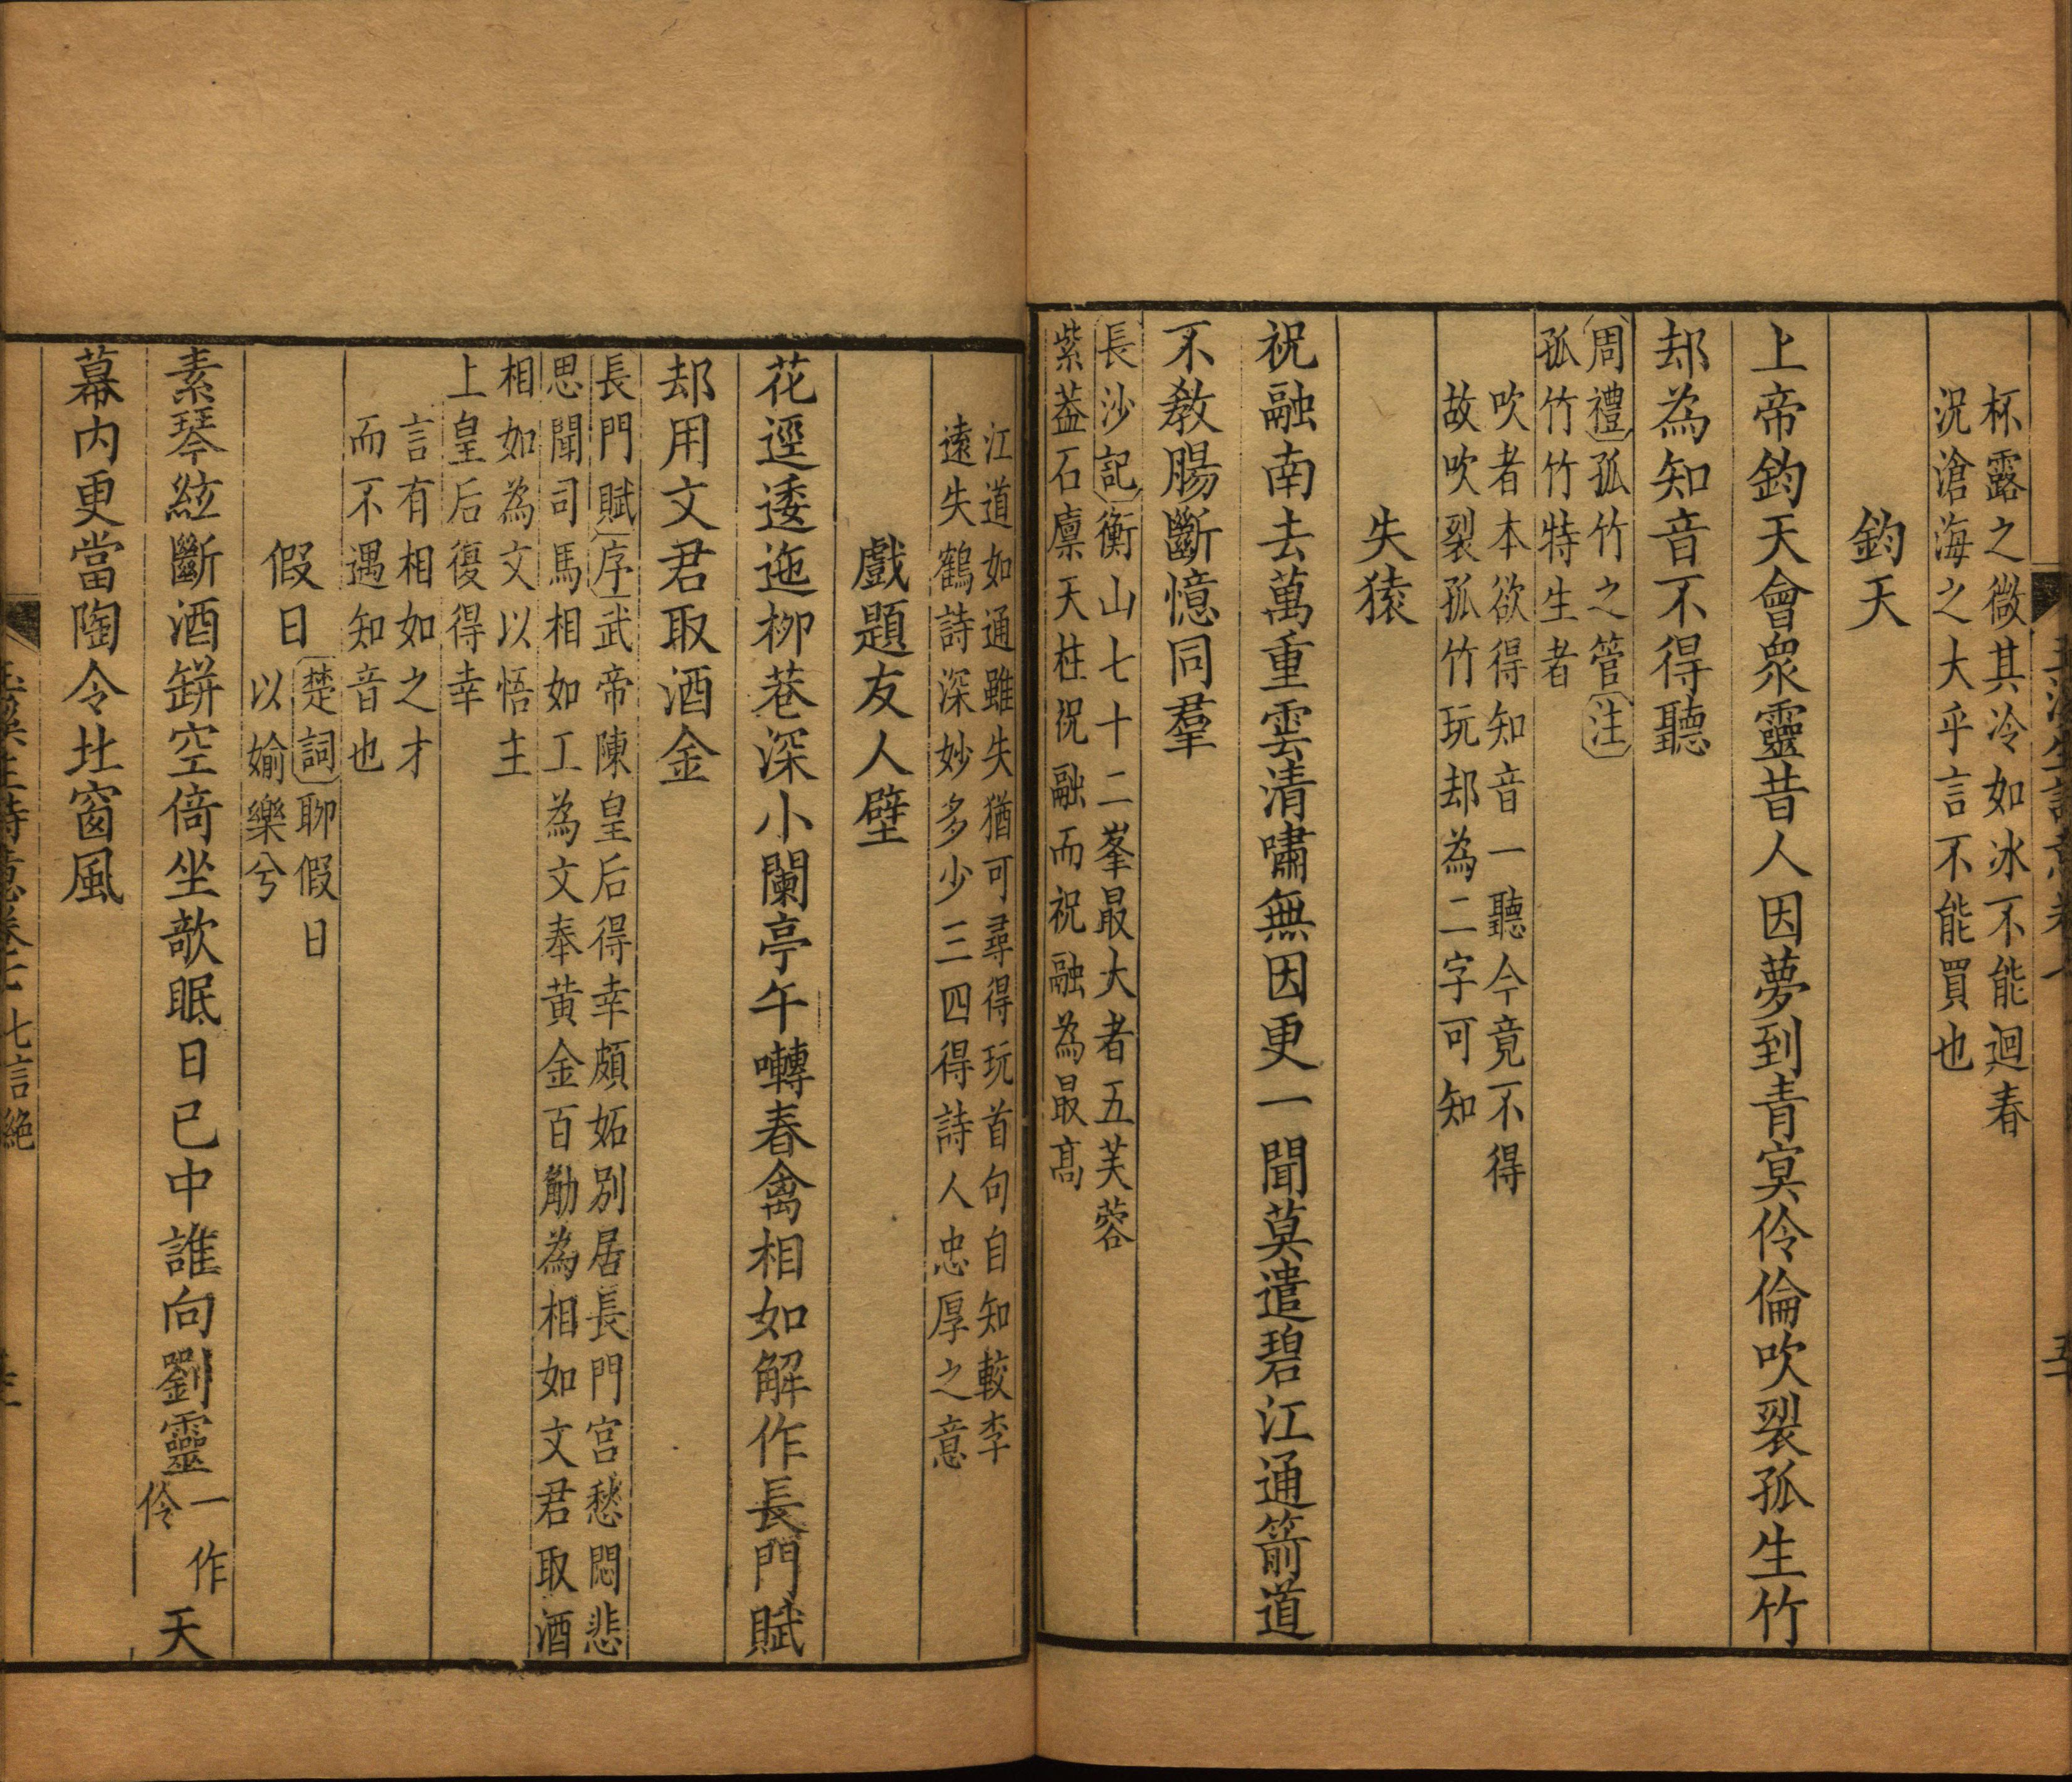 杯露之微其冷如冰不能迴春
況滄海之大乎言不能買也
鈞天
上帝鈞天會衆靈昔人因夢到青冥伶倫吹裂孤生竹
却為知音不得聽
周禮孤竹之管注
孤竹竹特生者
吹者本欲得知音一聽今竟不得
故吹裂孤竹玩却為二字可知
失猿
祝融南去萬重雲清嘯無因更一聞莫遣碧江通箭道
不教腸斷憶同羣
長沙記衡山七十二峯最大者五芙蓉
紫葢石廩天柱祝融而祝融為最高
江道如通雖失猶可尋得玩首句自知較李
遠失鶴詩深妙多少三四得詩人忠厚之意
戲題友人壁
花逕逶迤柳巷深小闌亭午囀春禽相如解作長門賦
却用文君取酒金
長門賦序武帝陳皇后得幸頗妬別居長門宮愁悶悲
思聞司馬相如工為文奉黃金百觔為相如文君取酒
相如為文以悟主
上皇后復得幸
言有相如之才
而不遇知音也
假日
楚詞聊假日
以媮樂兮
素琴絃斷酒缾空倚坐欹眠日已中誰向劉靈一作伶天
幕內更當陶令北窗風
七言絕